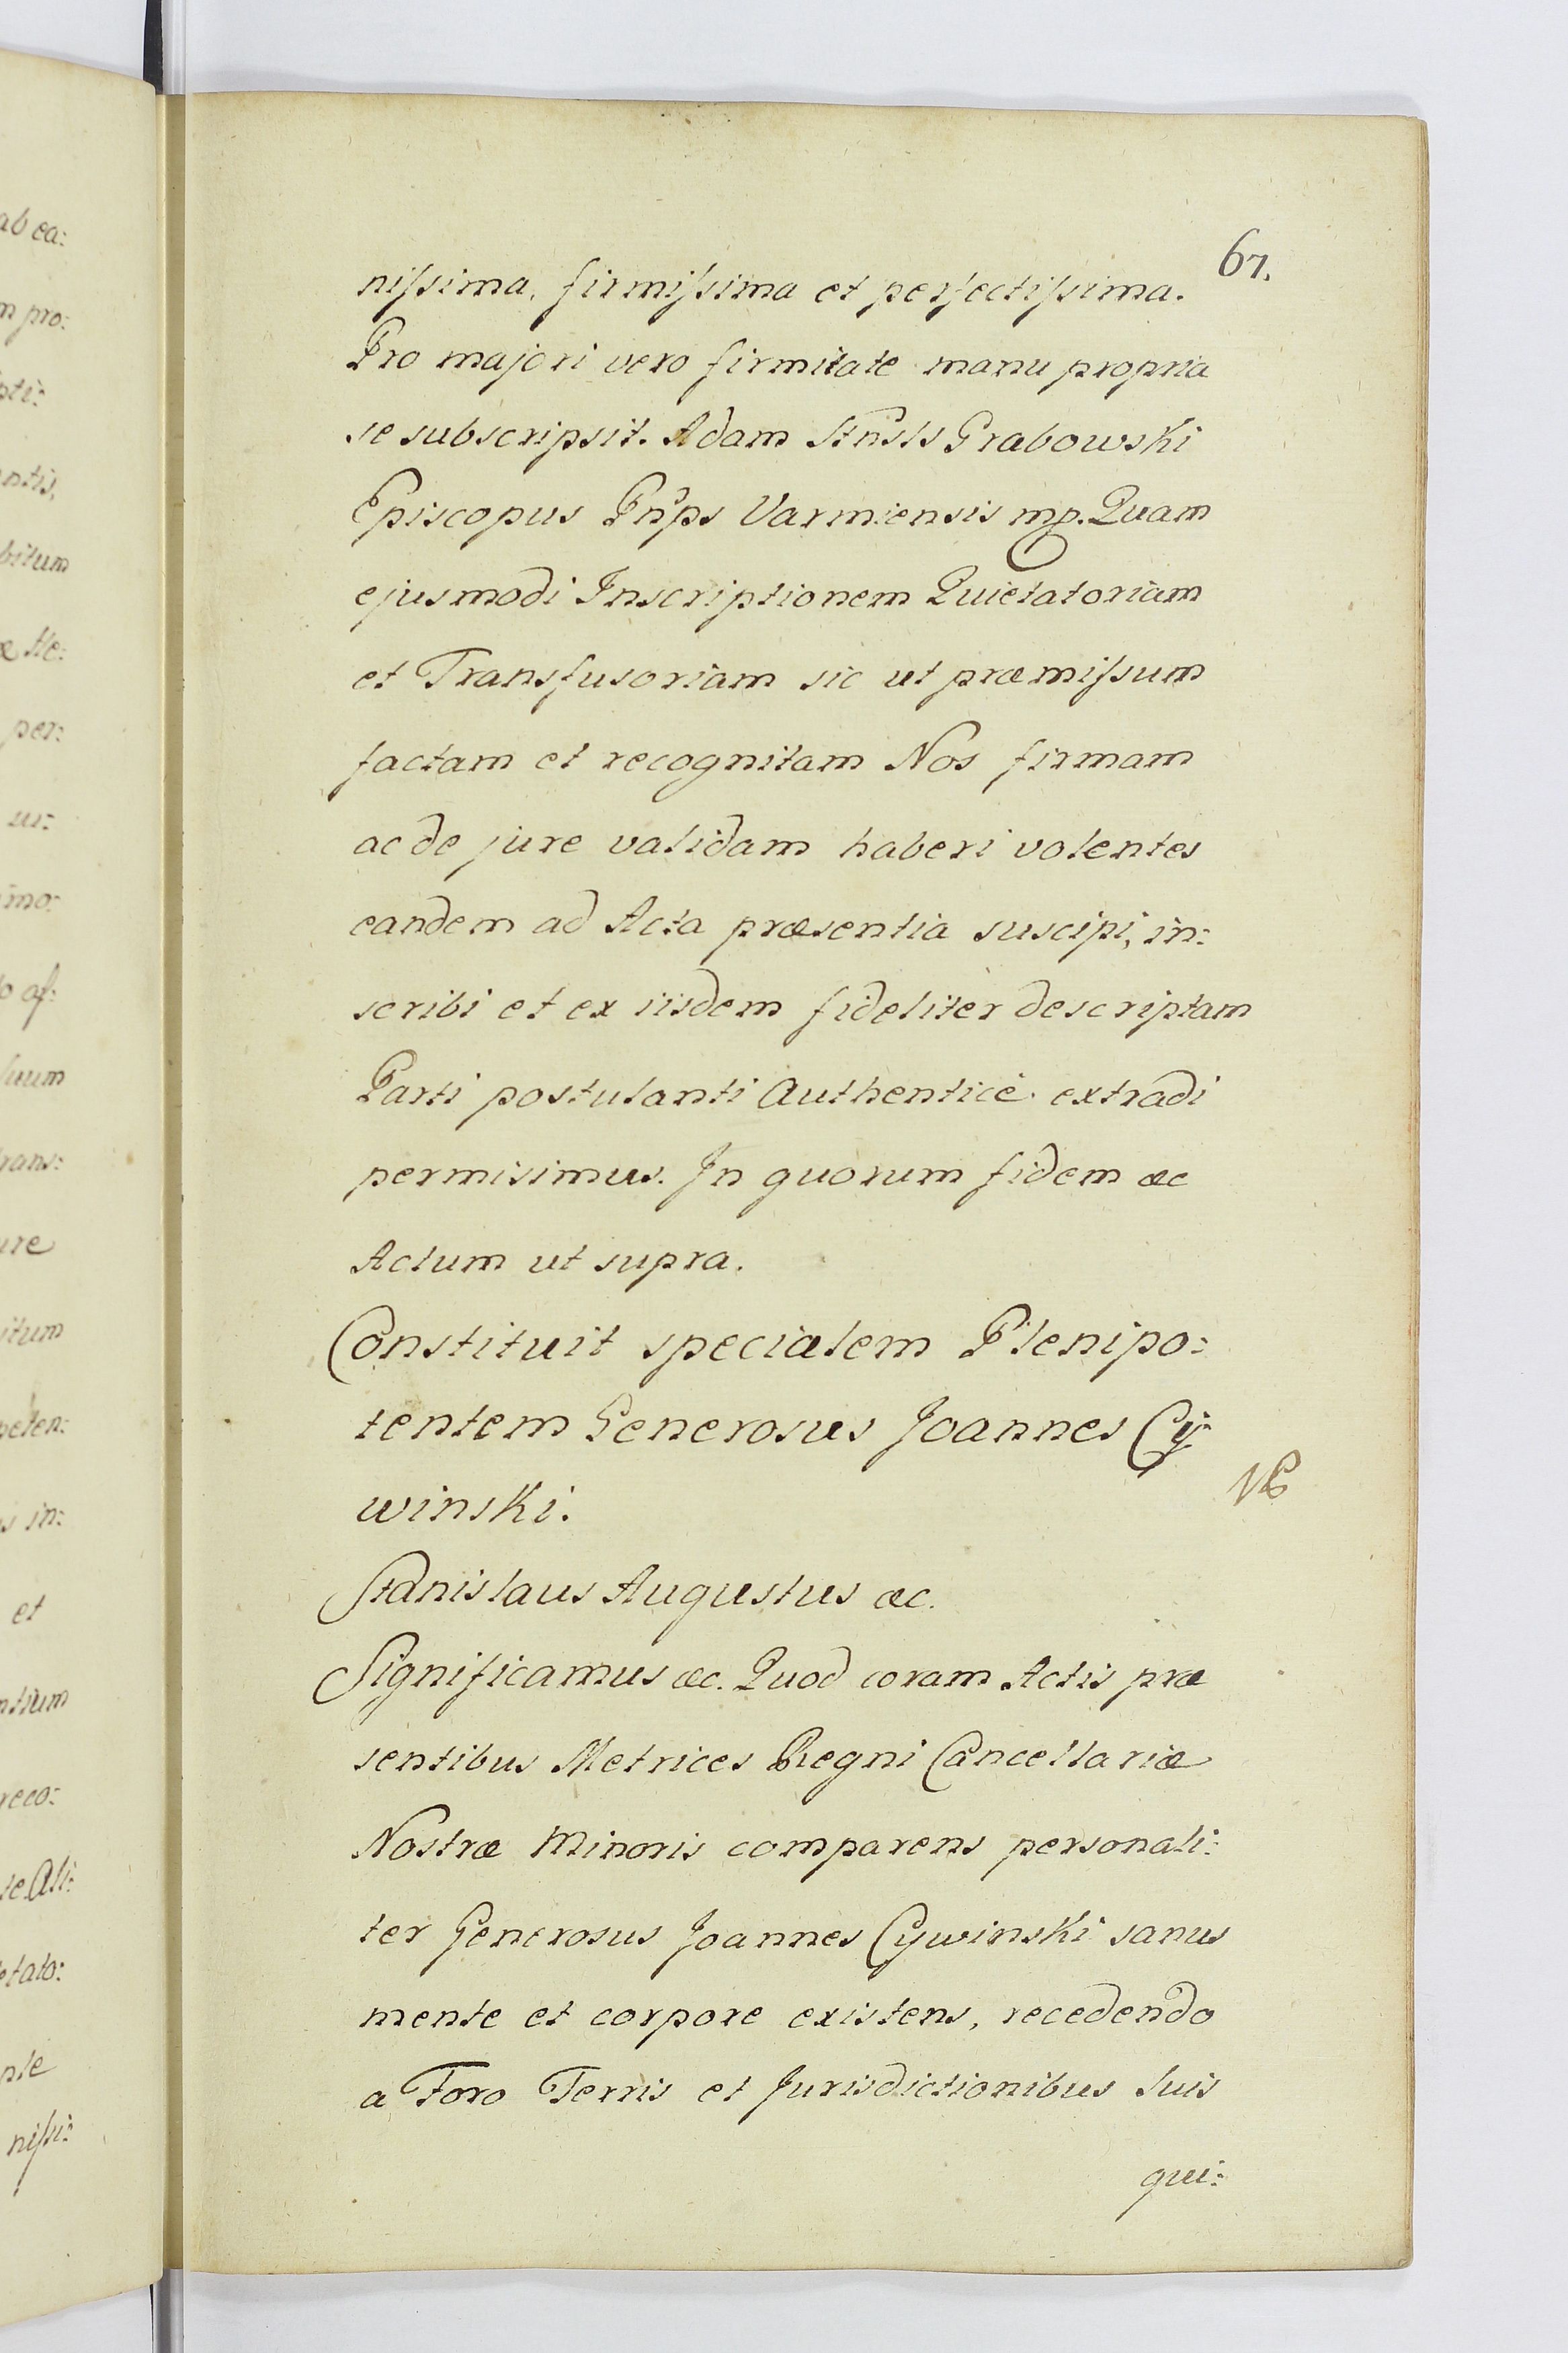 67.
nissima, firmissima et perfectissima.
Pro majori vero firmitate manu propria
se subscripsit. Adam Stnsls Grabowski
Episcopus Pnps Varmiensis mp. Quam
ejusmodi Inscriptionem Quietatoriam
et Transfusoriam sic ut præmissum
factam et recognitam Nos firmam
ac de jure validam haberi volentes
eandem ad Acta præsentia suscipi, in:
scribi et ex iisdem fideliter descriptam
Parti postulanti Authenticè extradi
permisimus. In quorum fidem æc
Actum ut supra.
Constituit specialem Plenipo:
tentem Generosus Joannes Cy:
winski.
NB
Stanislaus Augustus æc.
Significamus æc. Quod coram Actis præ
sentibus Metrices Regni Cancellariæ
Nostræ Minoris comparens personali:
ter Generosus Joannes Cywinski sanus
mente et corpore existens, recedendo
a Foro Terris et Jurisdictionibus suis
qui:
ab ea:
m pro:
pti:
entis,
bitum
per:
et
reco:
nissi: